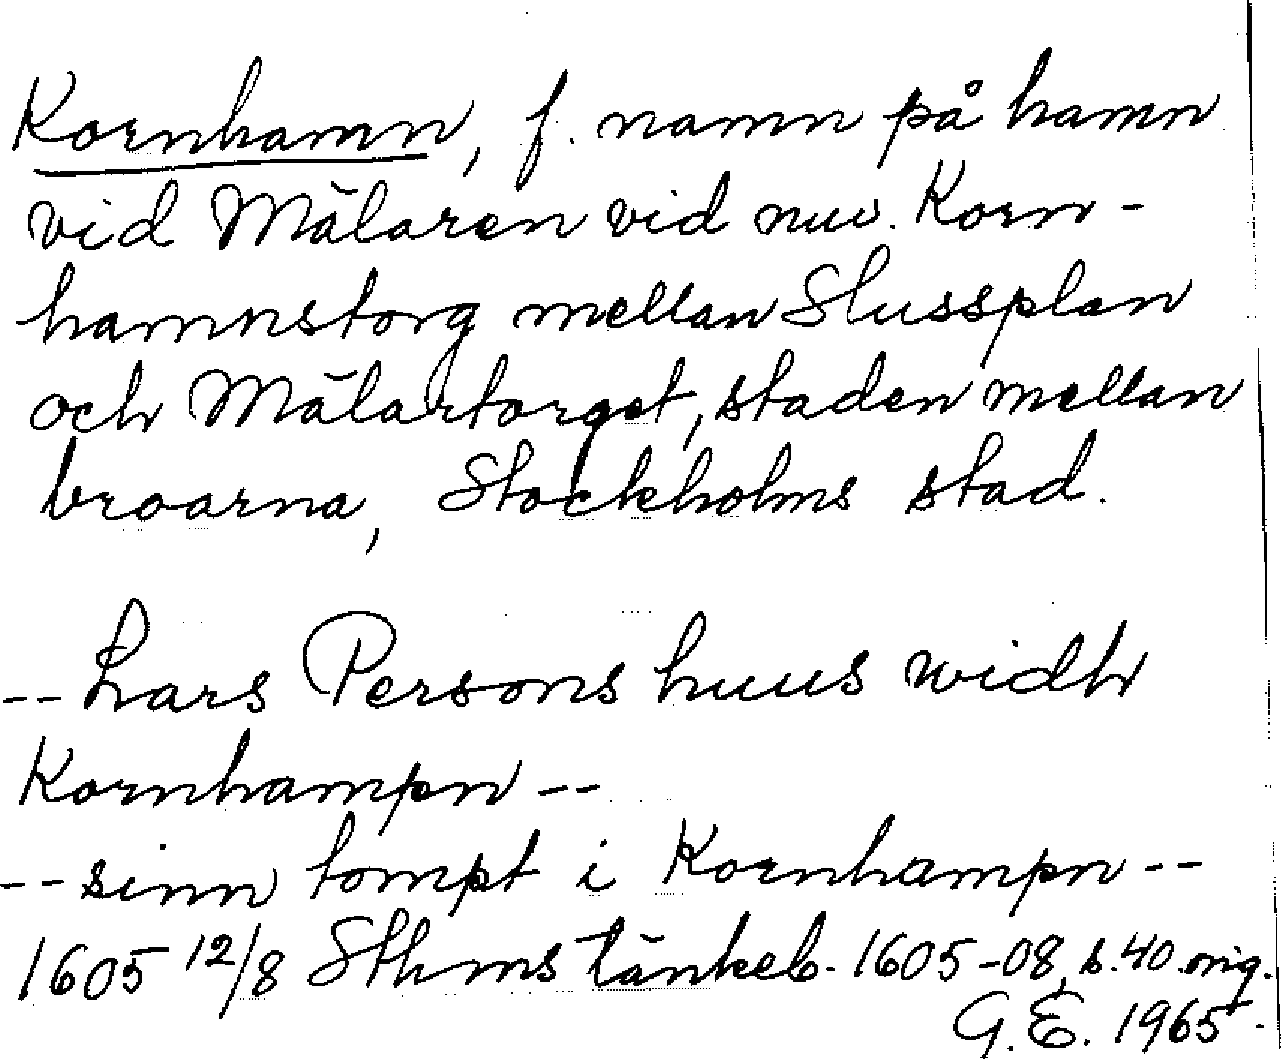 Kornhamn, f. namn på hamn
vid Mälaren vid nuv. Korn-
hamnstorg mellan Slussplan
och Mälartorget, staden mellan
broarna, Stockholms stad.
-- Lars Persons huus widh
Kornhampn --
-- sinn tompt i Kornhampn --
1605 12/8 Sthms tänkeb. 1605-08, s. 40. orig.
G.E. 1965.